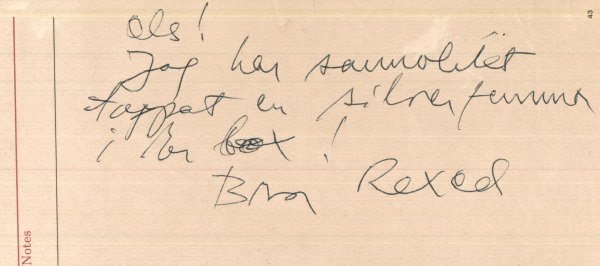 Obs!
Jag har sannolikt
tappat en silverfemma
i Er box!
Bror Rexed
43
Notes